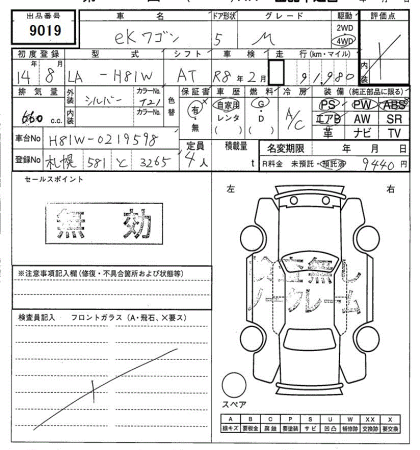 出品番号 車名 ドア形状 グレード 駆動 評価点
9019 eKワゴン 5 M 2WD 4WD
初度登録 型式 シフト 車検 走行 (km・マイル) 内装
14年8月 LA-H81W AT R8年2月 91,980
排気量 外装 シルバー カラーNo. T21 色替 保証書 車歴 燃料 冷房 装備 (純正部品に限る)
660 c.c. 内装 カラーNo. 有・無 自家用 レンタ ( ) G・D ( ) A/C PS PW ABS
エアB AW SR
革 ナビ TV
車台No H81W-0219598 定員 積載量 名変期限 年 月 日
登録No 札幌 581 と 3265 4人 t R料金 未預託・預託済 9440円
セールスポイント 左 右
無効
検査無効
ノークレーム
※注意事項記入欄 (修復・不具合箇所および状態等)
検査員記入 フロントガラス (A・飛石、×要ス)
スペア
A B C P S U W X XX
線キズ 要板金 腐蝕 要塗装 サビ 凹凸 補修跡 交換跡 要交換